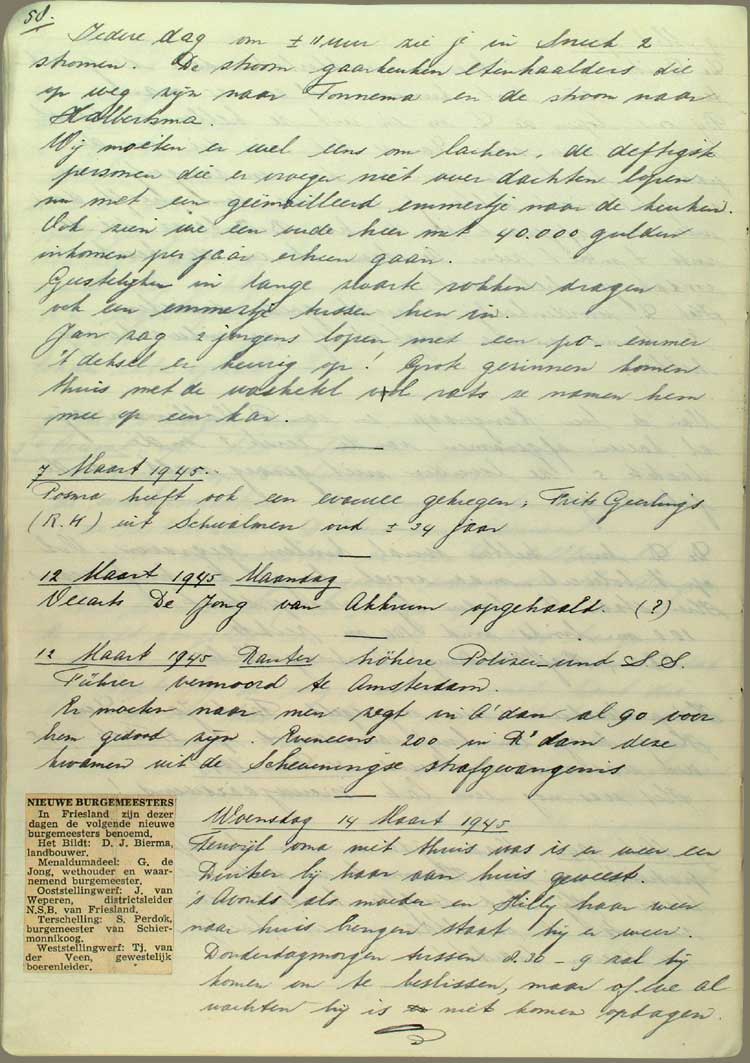 58.
Iedere dag om ± 11 uur zie je in Sneek 2
stromen. De stroom gaarkeuken etenhaalders die
op weg zijn naar Tonnema en de stroom naar
Halbertsma.
Wij moeten er wel eens om lachen, de deftigste
personen die er vroeger niet over dachten lopen
nu met een geëmailleerd emmertje naar de keuken.
Ook zien we een oude heer met 40.000 gulden
inkomen per jaar erheen gaan.
Geestelijken in lange zwarte rokken dragen
ook een emmertje tussen hen in.
Jan zag 2 jongens lopen met een po-emmer
't deksel er keurig op! Grote gezinnen komen
thuis met de wasketel vol rats ze namen hem
mee op een kar.
7 Maart 1945.
Posma heeft ook een evacué gekregen, Frits Geerlings
(R.K) uit Schwalmen oud ± 34 jaar
12 Maart 1945 Maandag
Veearts De Jong van Akkrum opgehaald. (?)
12 Maart 1945 Rauter höhere Polizei und S.S.
Führer vermoord te Amsterdam.
Er moeten naar men zegt in A'dam al 90 voor
hem gedood zijn. Eveneens 200 in R'dam deze
kwamen uit de Scheveningse strafgevangenis
NIEUWE BURGEMEESTERS
In Friesland zijn dezer
dagen de volgende nieuwe
burgemeesters benoemd.
Het Bildt: D. J. Bierma,
landbouwer.
Menaldumadeel: G. de
Jong, wethouder en waar-
nemend burgemeester.
Ooststellingwerf: J. van
Weperen, districtsleider
N.S.B. van Friesland.
Terschelling: S. Perdok,
burgemeester van Schier-
monnikoog.
Weststellingwerf: Tj. van
der Veen, gewestelijk
boerenleider.
Woensdag 14 Maart 1945
Terwijl oma niet thuis was is er weer een
bij haar aan huis geweest.
's Avonds als moeder en Hilly haar weer
naar huis brengen staat hij er weer.
Donderdagmorgen tussen 8.30 - 9 zal hij
komen om te beslissen, maar of we al
wachten hij is niet komen opdagen.